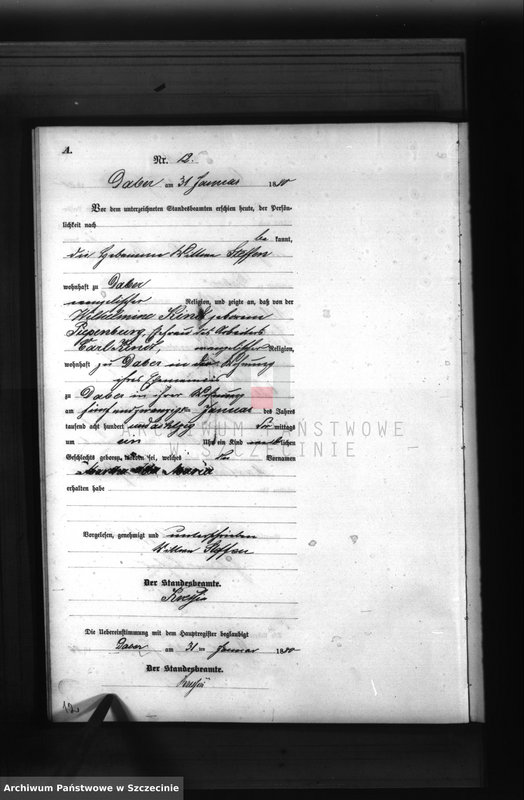 A.
Nr. 12.
Daber am 31 Januar 1880
Vor dem unterzeichneten Standesbeamten erschien heute, der Persön-
lichkeit nach
be kannt,
die Hebamme Wittwe Steffen
wohnhaft zu Daber
evangelischer Religion, und zeigte an, daß von der
Wilhelmine Kindt geborene
Piepenburg, Ehefrau des Arbeiters
Carl Kindt, evangelischer Religion,
wohnhaft zu Daber in der Wohnung
ihres Ehemannes
zu Daber in ihrer Wohnung
am fünf und zwanzigsten Januar des Jahres
tausend acht hundert und achtzig Vor mittags
um ein Uhr ein Kind weiblichen
Geschlechts geboren worden sei, welches die Vornamen
Maria
erhalten habe
Vorgelesen, genehmigt und unterschrieben
Wittwe Steffen
Der Standesbeamte.
Die Uebereinstimmung mit dem Hauptregister beglaubigt
Daber am 31 ten Januar 1880
Der Standesbeamte.
12
ARCHIWUM PAŃSTWOWE
W SZCZECINIE
Archiwum Państwowe w Szczecinie